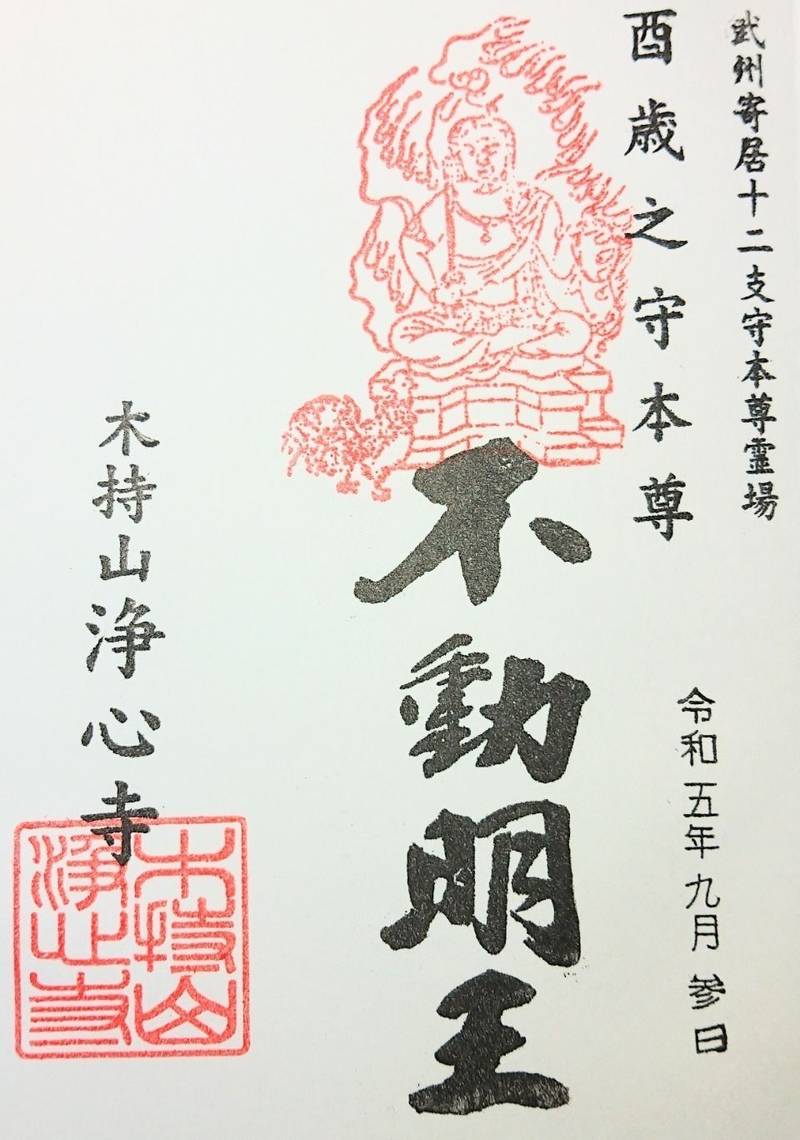 武州寄居十二支守本尊霊場
酉歳之守本尊
令和五年九月参日
不動明王
木持山浄心寺
木持山
浄心寺